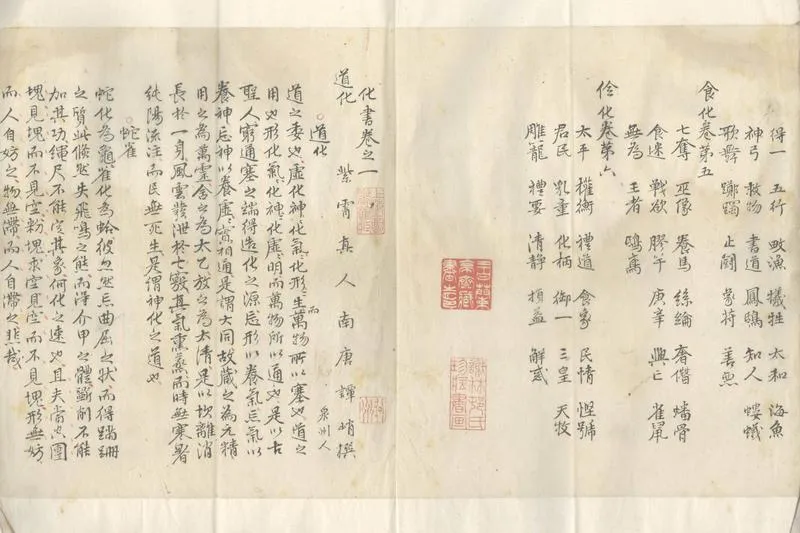 得一 五行 畋漁 犧牲 太和 海魚
神弓 救物 書道 鳳鴟 知人 螻蟻
歌舞 躑躅 止鬬 象符 善惡
食化卷第五
七奪 巫像 養馬 絲綸 奢僭 燔骨
食迷 戰欲 膠午 庚辛 興亡 雀鼠
無為 王者 鴟鳶
儉化卷第六
太平 權衡 禮道 食象 民情 慳號
君民 乳童 化柄 御一 三皇 天牧
雕籠 禮要 清靜 損益 解惑
化書卷之一
道化 紫霄真人南唐譚峭撰 泉州人
道化
道之委也虛化神化氣化形生而萬物所以塞也道之
用也形化氣化神化虛明而萬物所以通也是以古
聖人窮通塞之端得造化之源忘形以養氣忘氣以
養神忘神以養虛虛實相通是謂大同故藏之為元精
用之為萬靈含之為太乙放之為太清是以坎離消
長於一身風雲發泄於七竅真氣熏蒸而時無寒暑
純陽流注而民無死生是謂神化之道也
蛇雀
蛇化為龜雀化為蛤彼忽然忘曲屈之狀而得蹣跚
之質此倏然失飛鳴之能而得介甲之體斲削不能
加其功繩尺不能定其象何化之速也且夫當空團
塊見塊而不見空粉塊求空見空而不見塊形無妨
而人自妨之物無滯而人自滯之悲哉